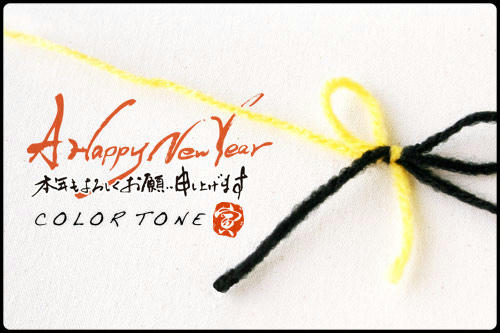 A Happy New Year
本年もよろしくお願い申し上げます
COLOR TONE 寅